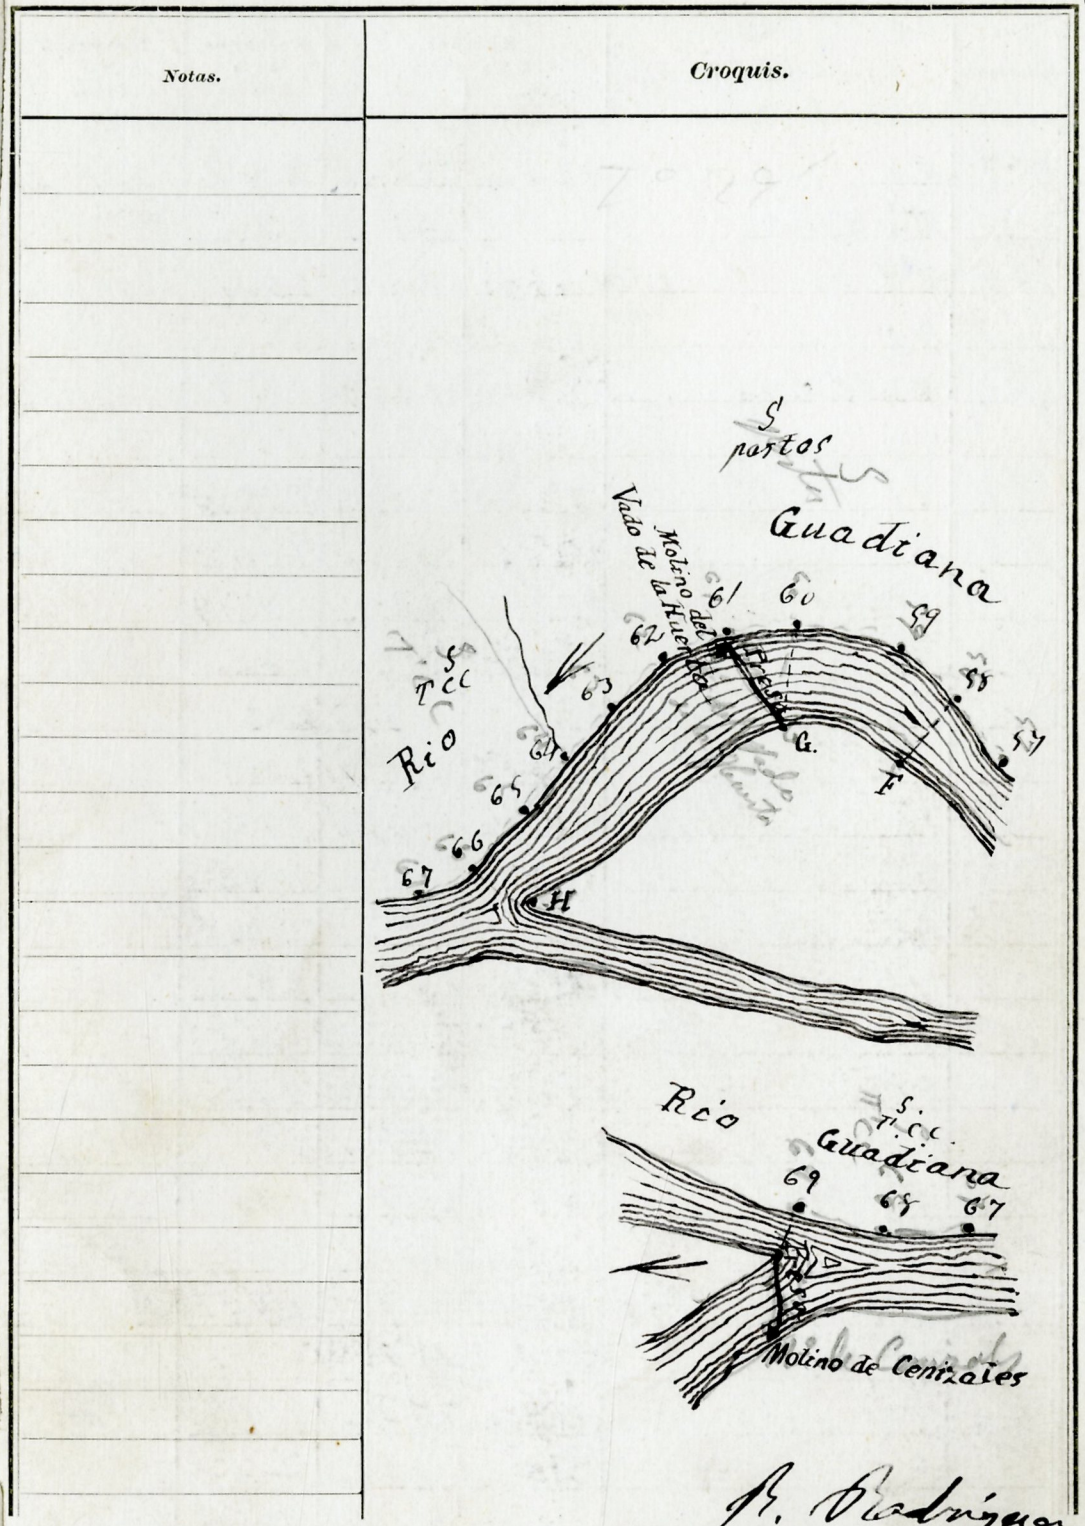 Notas.
Croquis.
S
pastos
Guadiana
Molino del
Vado de la Huerta
61
60
59
58
57
62
Presa
63
S
T CC
Rio
64
G.
F
65
66
67
H
Rio
S.
T. C. C.
Guadiana
69
68
67
Presa
Molino de Cenizates
R. Rodríguez